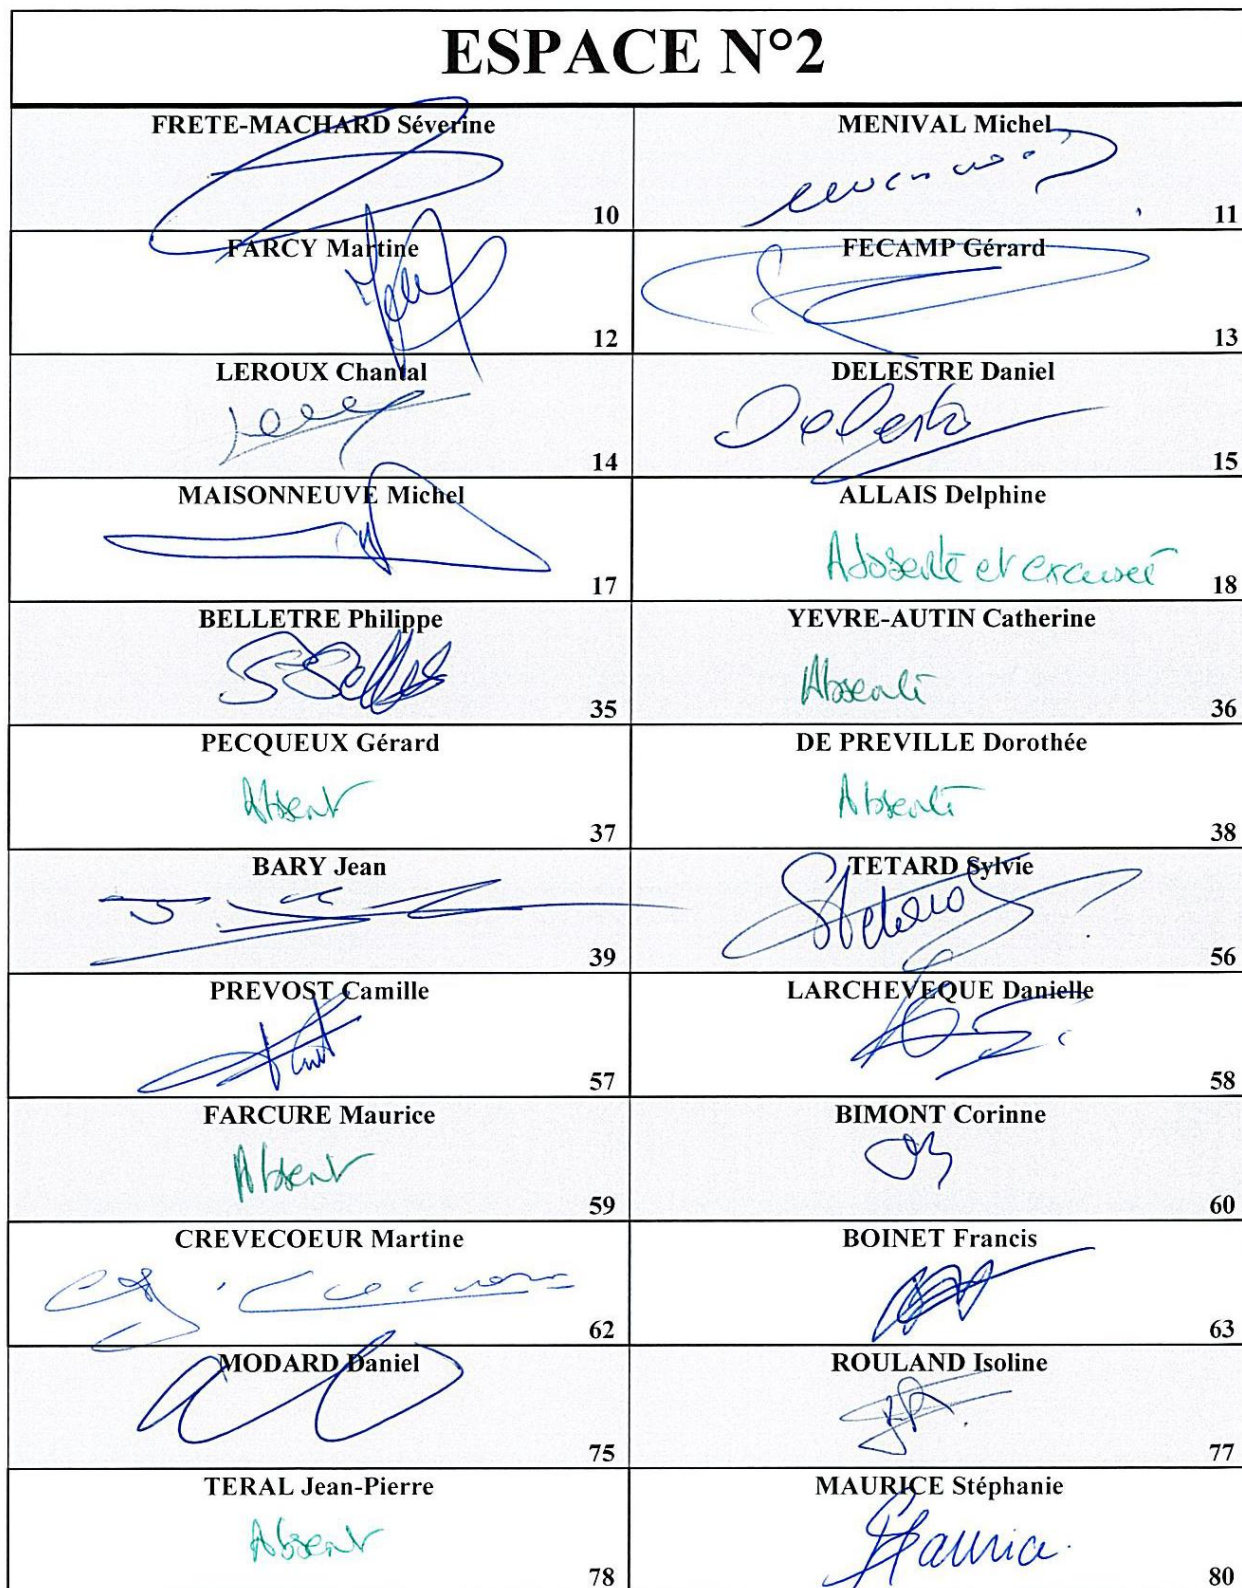 ESPACE N°2
FRETE-MACHARD Séverine
10
MENIVAL Michel
11
FARCY Martine
12
FECAMP Gérard
13
LEROUX Chantal
14
DELESTRE Daniel
15
MAISONNEUVE Michel
17
ALLAIS Delphine
Absente et excusée
18
BELLETRE Philippe
35
YEVRE-AUTIN Catherine
Absente
36
PECQUEUX Gérard
Absent
37
DE PREVILLE Dorothée
Absente
38
BARY Jean
39
TETARD Sylvie
56
PREVOST Camille
57
LARCHEVEQUE Danielle
58
FARCURE Maurice
Absent
59
BIMONT Corinne
60
CREVECOEUR Martine
62
BOINET Francis
63
MODARD Daniel
75
ROULAND Isoline
77
TERAL Jean-Pierre
Absent
78
MAURICE Stéphanie
80